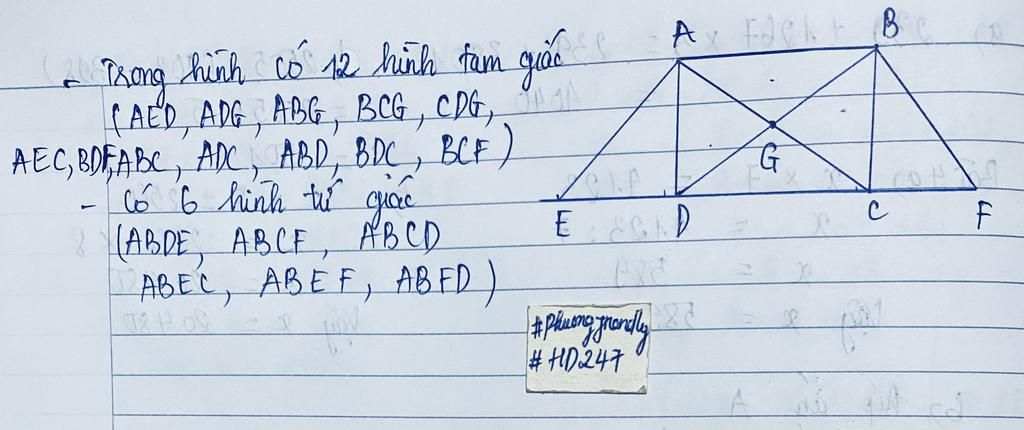 - Trong hình có 12 hình tam giác
(AED, ADG, ABG, BCG, CDG,
AEC, BDF, ABC, ADC, ABD, BDC, BCF)
- Có 6 hình tứ giác
(ABDE, ABCF, ABCD
ABEC, ABEF, ABFD)
A
B
G
E
D
C
F
#HD247